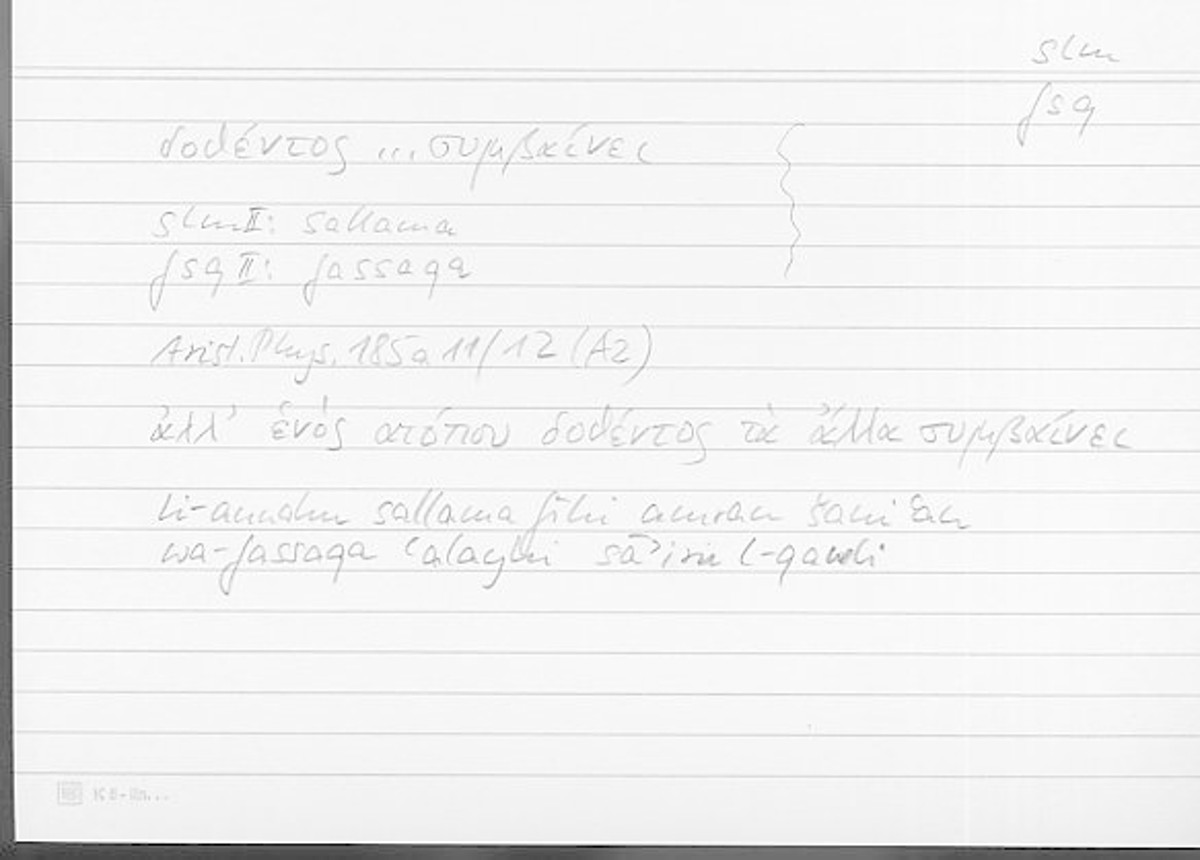 slm
fsq
δοθέντος ... συμβαίνει
slm II: sallama
fsq II: fassaqa
Arist. Phys. 185a 11/12 (A2)
ἀλλ' ἑνός ἀτόπου δοθέντος τὰ ἄλλα συμβαίνει
li-annahu sallama fīhi amran šanīʿan
wa-fassaqa ʿalayhi sāʾira l-qawli